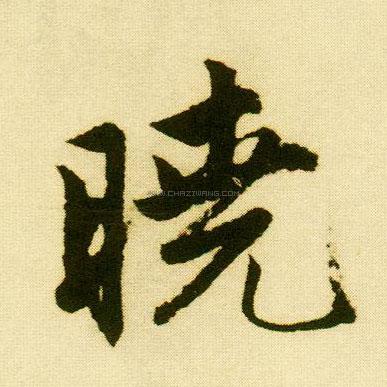 曉
WWW.CHAZIWANG.COM